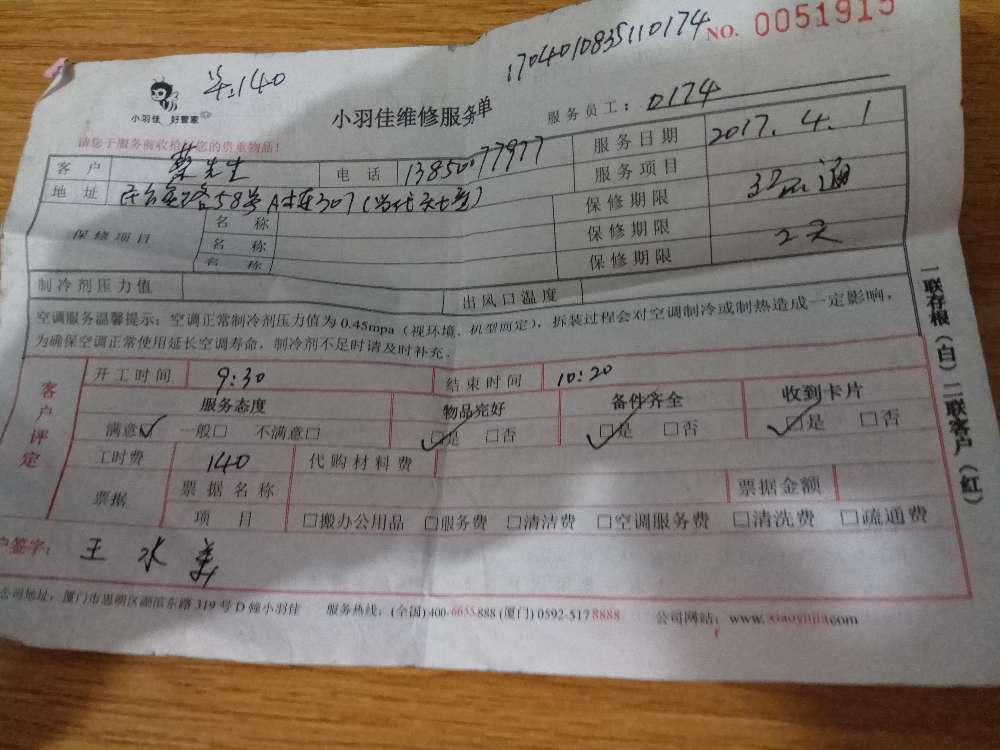 1704010835110174 NO. 0051915
140
小羽佳 好管家
小羽佳维修服务单 服务员工：0174
请您于服务前收拾好您的贵重物品！
客户 蔡先生 电话 服务日期 2017.4.1
地址 58号A栋307 服务项目 通
保修项目 名称 保修期限
名称 保修期限 2天
名称 保修期限
制冷剂压力值 出风口温度
空调服务温馨提示：空调正常制冷剂压力值为0.45mpa（视环境、机型而定），拆装过程会对空调制冷或制热造成一定影响，
为确保空调正常使用延长空调寿命，制冷剂不足时请及时补充．
客户评定
开工时间 9:30 结束时间 10:20
服务态度 物品完好 备件齐全 收到卡片
满意☑ 一般□ 不满意□ ☑是 □否 ☑是 □否 ☑是 □否
工时费 140 代购材料费
票据 票据名称 票据金额
项目 □搬办公用品 □服务费 □清洁费 □空调服务费 □清洗费 □疏通费
户签字： 王水美
公司地址：厦门市思明区湖滨东路319号D幢小羽佳 服务热线：(全国)400-6655888 (厦门)0592-5178888 公司网站：www.xiaoyujia.com
一联存根（白）二联客户（红）